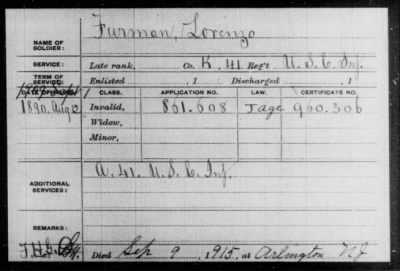 Furman, Lorenzo
NAME OF SOLDIER:
SERVICE: Late rank, Co. K, 41 Reg't U.S.C. Inf.
TERM OF SERVICE: Enlisted , 1 Discharged , 1
DATE OF FILING. CLASS. APPLICATION NO. LAW. CERTIFICATE NO.
1890, Aug 12 Invalid, 861.608 960.306
Widow,
Minor,
A. 41. U.S.C. Inf.
ADDITIONAL SERVICES:
REMARKS:
Died Sep 9, 1915, at Arlington NJ